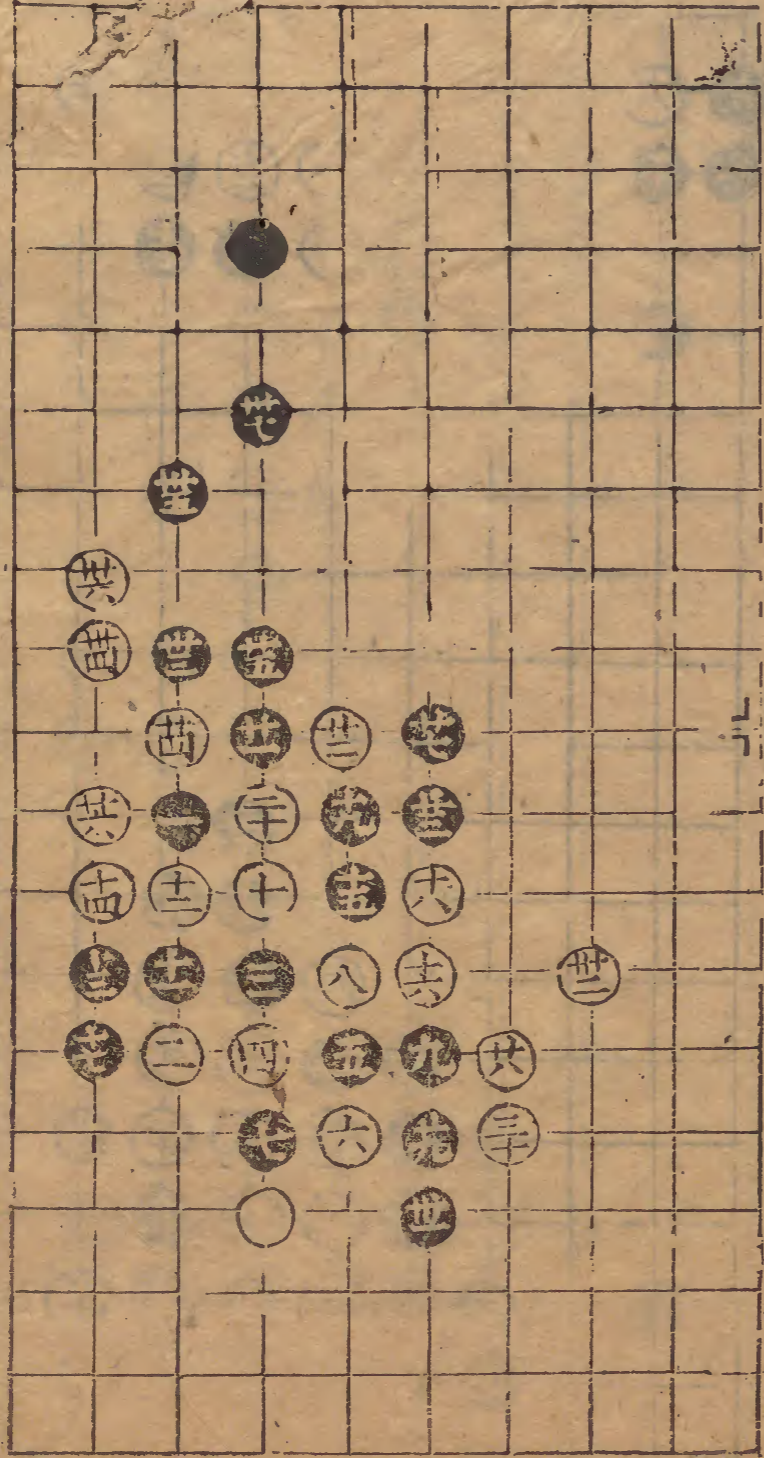 卅七
卅五
卅六
卅四 卅三 廿五
廿四 廿一 廿二 廿七
廿六 一 二十 十九 廿三
十四 十二 十 十五 十八
十三 十一 三 八 十六 卅二
十七 二 四 五 九 廿八
七 六 廿九 三十
卅一